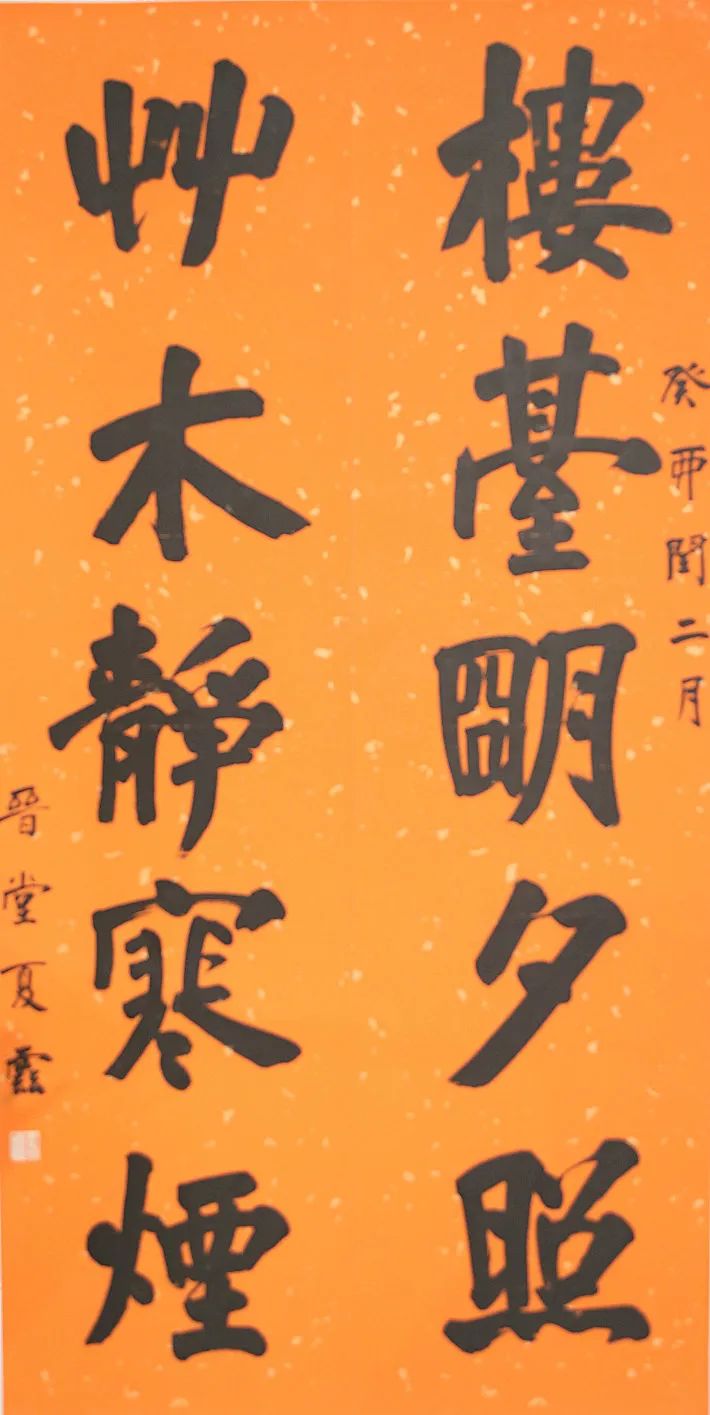 癸卯閏二月
樓臺朙夕照
艸木靜寒煙
晉堂夏